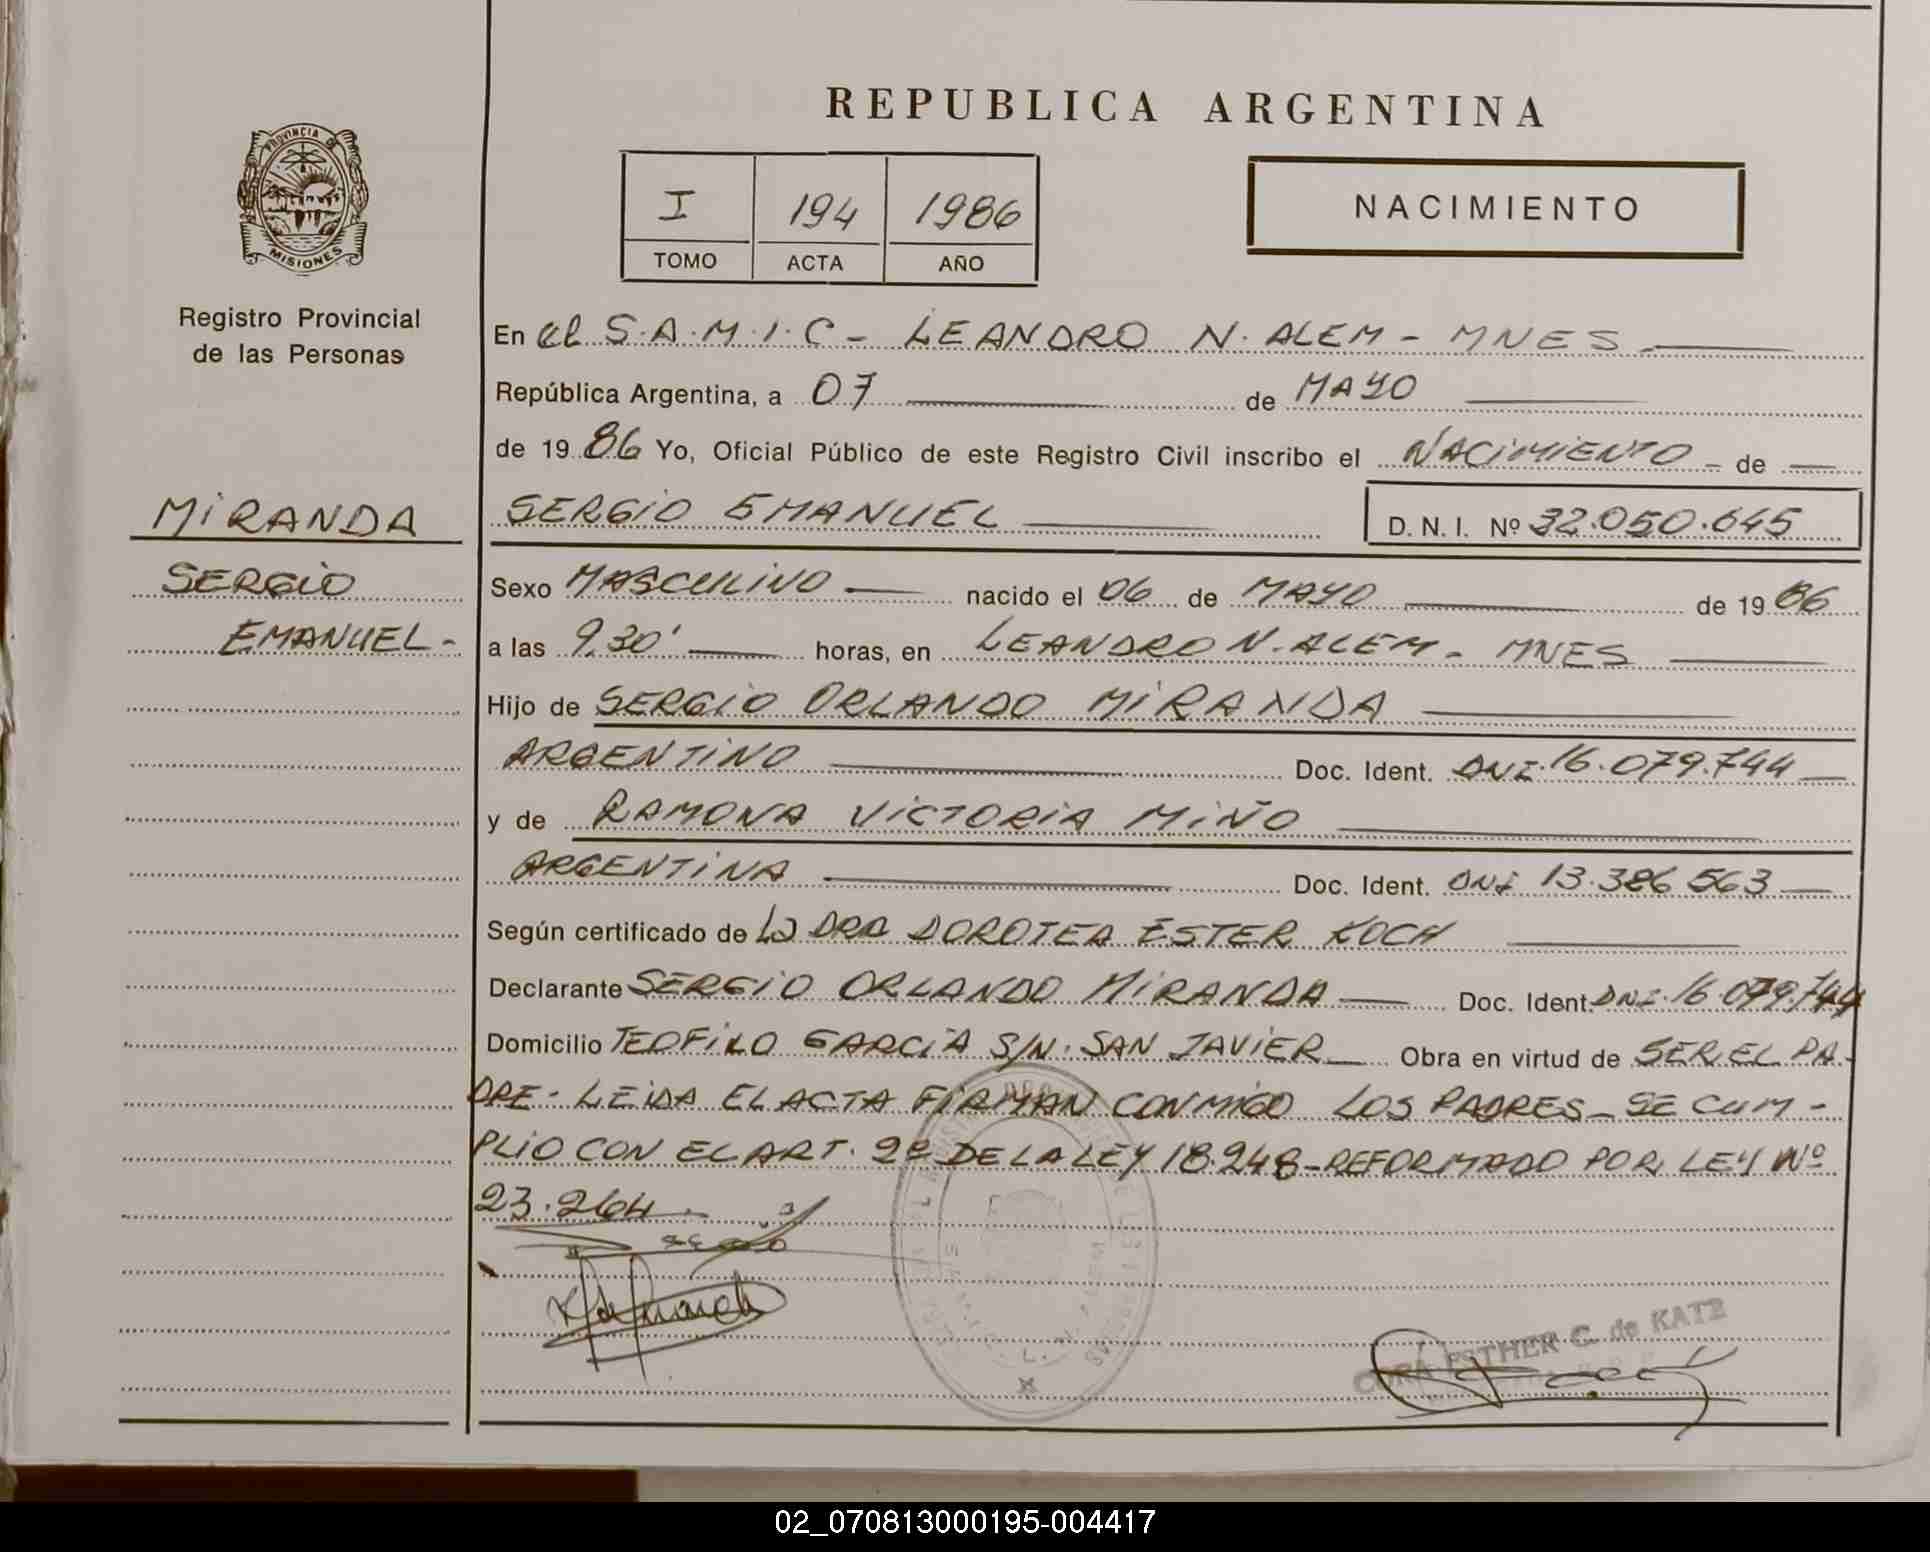 REPUBLICA ARGENTINA
PROVINCIA DE
MISIONES
Registro Provincial
de las Personas
I 194 1986
TOMO ACTA AÑO
NACIMIENTO
En el S.A.M.I.C - LEANDRO N. ALEM - MNES
República Argentina, a 07 de MAYO
de 1986 Yo, Oficial Público de este Registro Civil inscribo el NACIMIENTO - de
MIRANDA
SERGIO
EMANUEL-
SERGIO EMANUEL D. N. I. Nº 32.050.645
Sexo MASCULINO nacido el 06 de MAYO de 1986
a las 9,30' horas, en LEANDRO N. ALEM - MNES
Hijo de SERGIO ORLANDO MIRANDA
ARGENTINO Doc. Ident. DNI 16.079.744
y de RAMONA VICTORIA MIÑO
ARGENTINA Doc. Ident. DNI 13.386 563
Según certificado de LA DRA DOROTEA ESTER KOCH
Declarante SERGIO ORLANDO MIRANDA Doc. Ident. DNI. 16.079.744
Domicilio TEOFILO GARCIA S/N. SAN JAVIER Obra en virtud de SER EL PA-
DRE - LEIDA EL ACTA FIRMAN CONMIGO LOS PADRES - SE CUM-
PLIO CON EL ART. 2º DE LA LEY 18.248 - REFORMADO POR LEY Nº
23.264.
ESTHER C. de KATZ
02_070813000195-004417